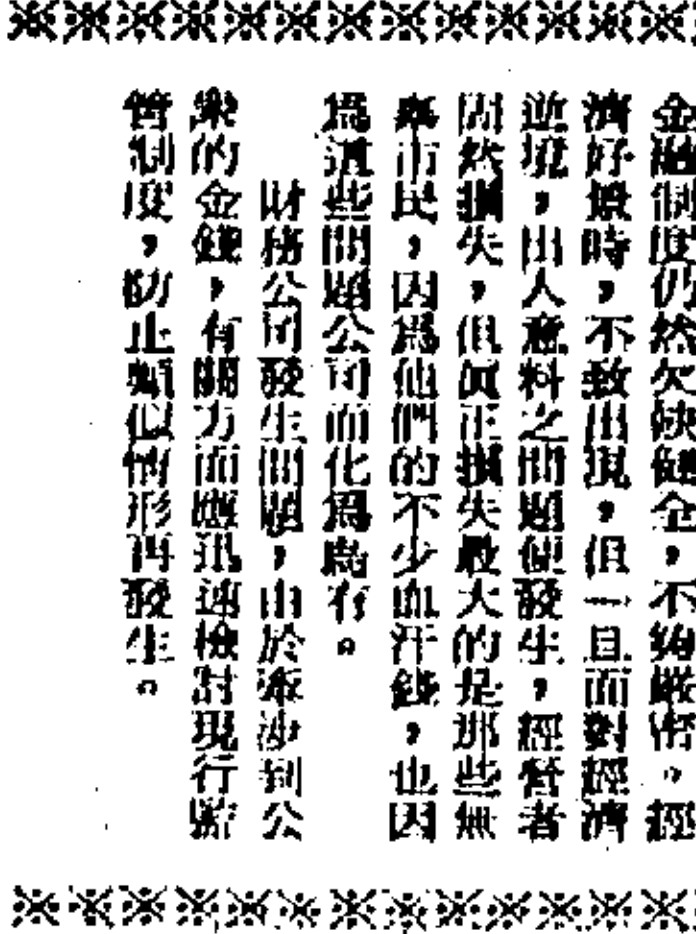 金融制度仍然欠缺健全，不夠嚴密。經
濟好景時，不致出現，但一旦面對經濟
逆境，出人意料之問題便發生，經營者
固然損失，但眞正損失最大的是那些無
辜市民，因爲他們的不少血汗錢，也因
爲這些問題公司而化爲烏有。
財務公司發生問題，由於牽涉到公
衆的金錢，有關方面應迅速檢討現行監
管制度，防止類似情形再發生。